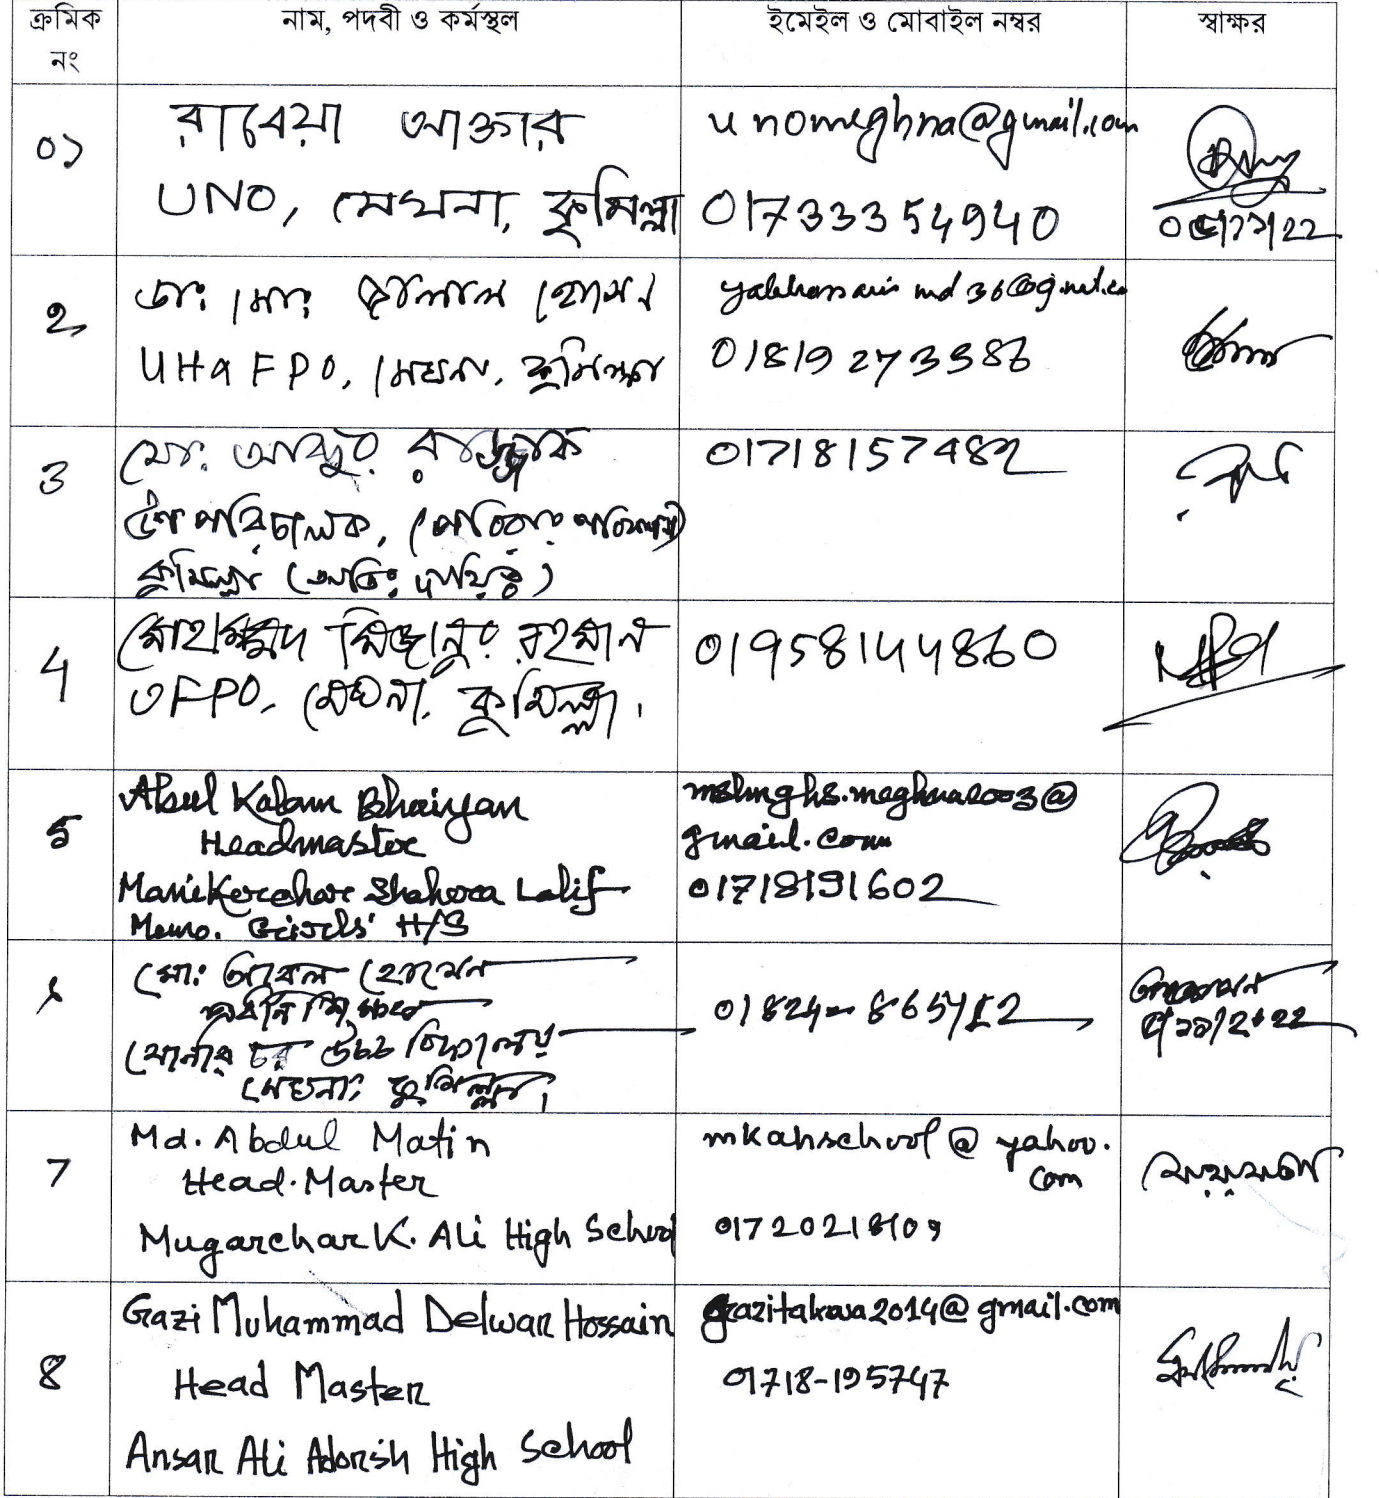 ক্রমিক নং
নাম, পদবী ও কর্মস্থল
ইমেইল ও মোবাইল নম্বর
স্বাক্ষর
০১
রাবেয়া আক্তার
UNO, মেঘনা, কুমিল্লা
unomeghna@gmail.com
01733354940
2
ডাঃ মোঃ জালাল হোসেন
UH&FPO, মেঘনা, কুমিল্লা
3
মোঃ আব্দুর রাজ্জাক
উপপরিচালক, (পরিবার পরিকল্পনা)
কুমিল্লা (অতিঃ দায়িত্ব)
01718157482
4
মোহাম্মদ মিজানুর রহমান
UFPO, মেঘনা, কুমিল্লা।
01958144860
5
Abul Kalam Bhaiyan
Headmaster
Manikerchar Shahera Latif
Memo. Girls' H/S
gmail.com
01718191602
৬
মোঃ হোসেন
প্রধান শিক্ষক
সোনার চর উচ্চ বিদ্যালয়
মেঘনা, কুমিল্লা।
7
Md. Abdul Matin
Head.Master
Mugarchar K. Ali High School
mkahschool@yahoo.
com
01720218109
8
Gazi Muhammad Delwar Hossain
Head Master
Ansar Ali Adorsh High School
01718-195747